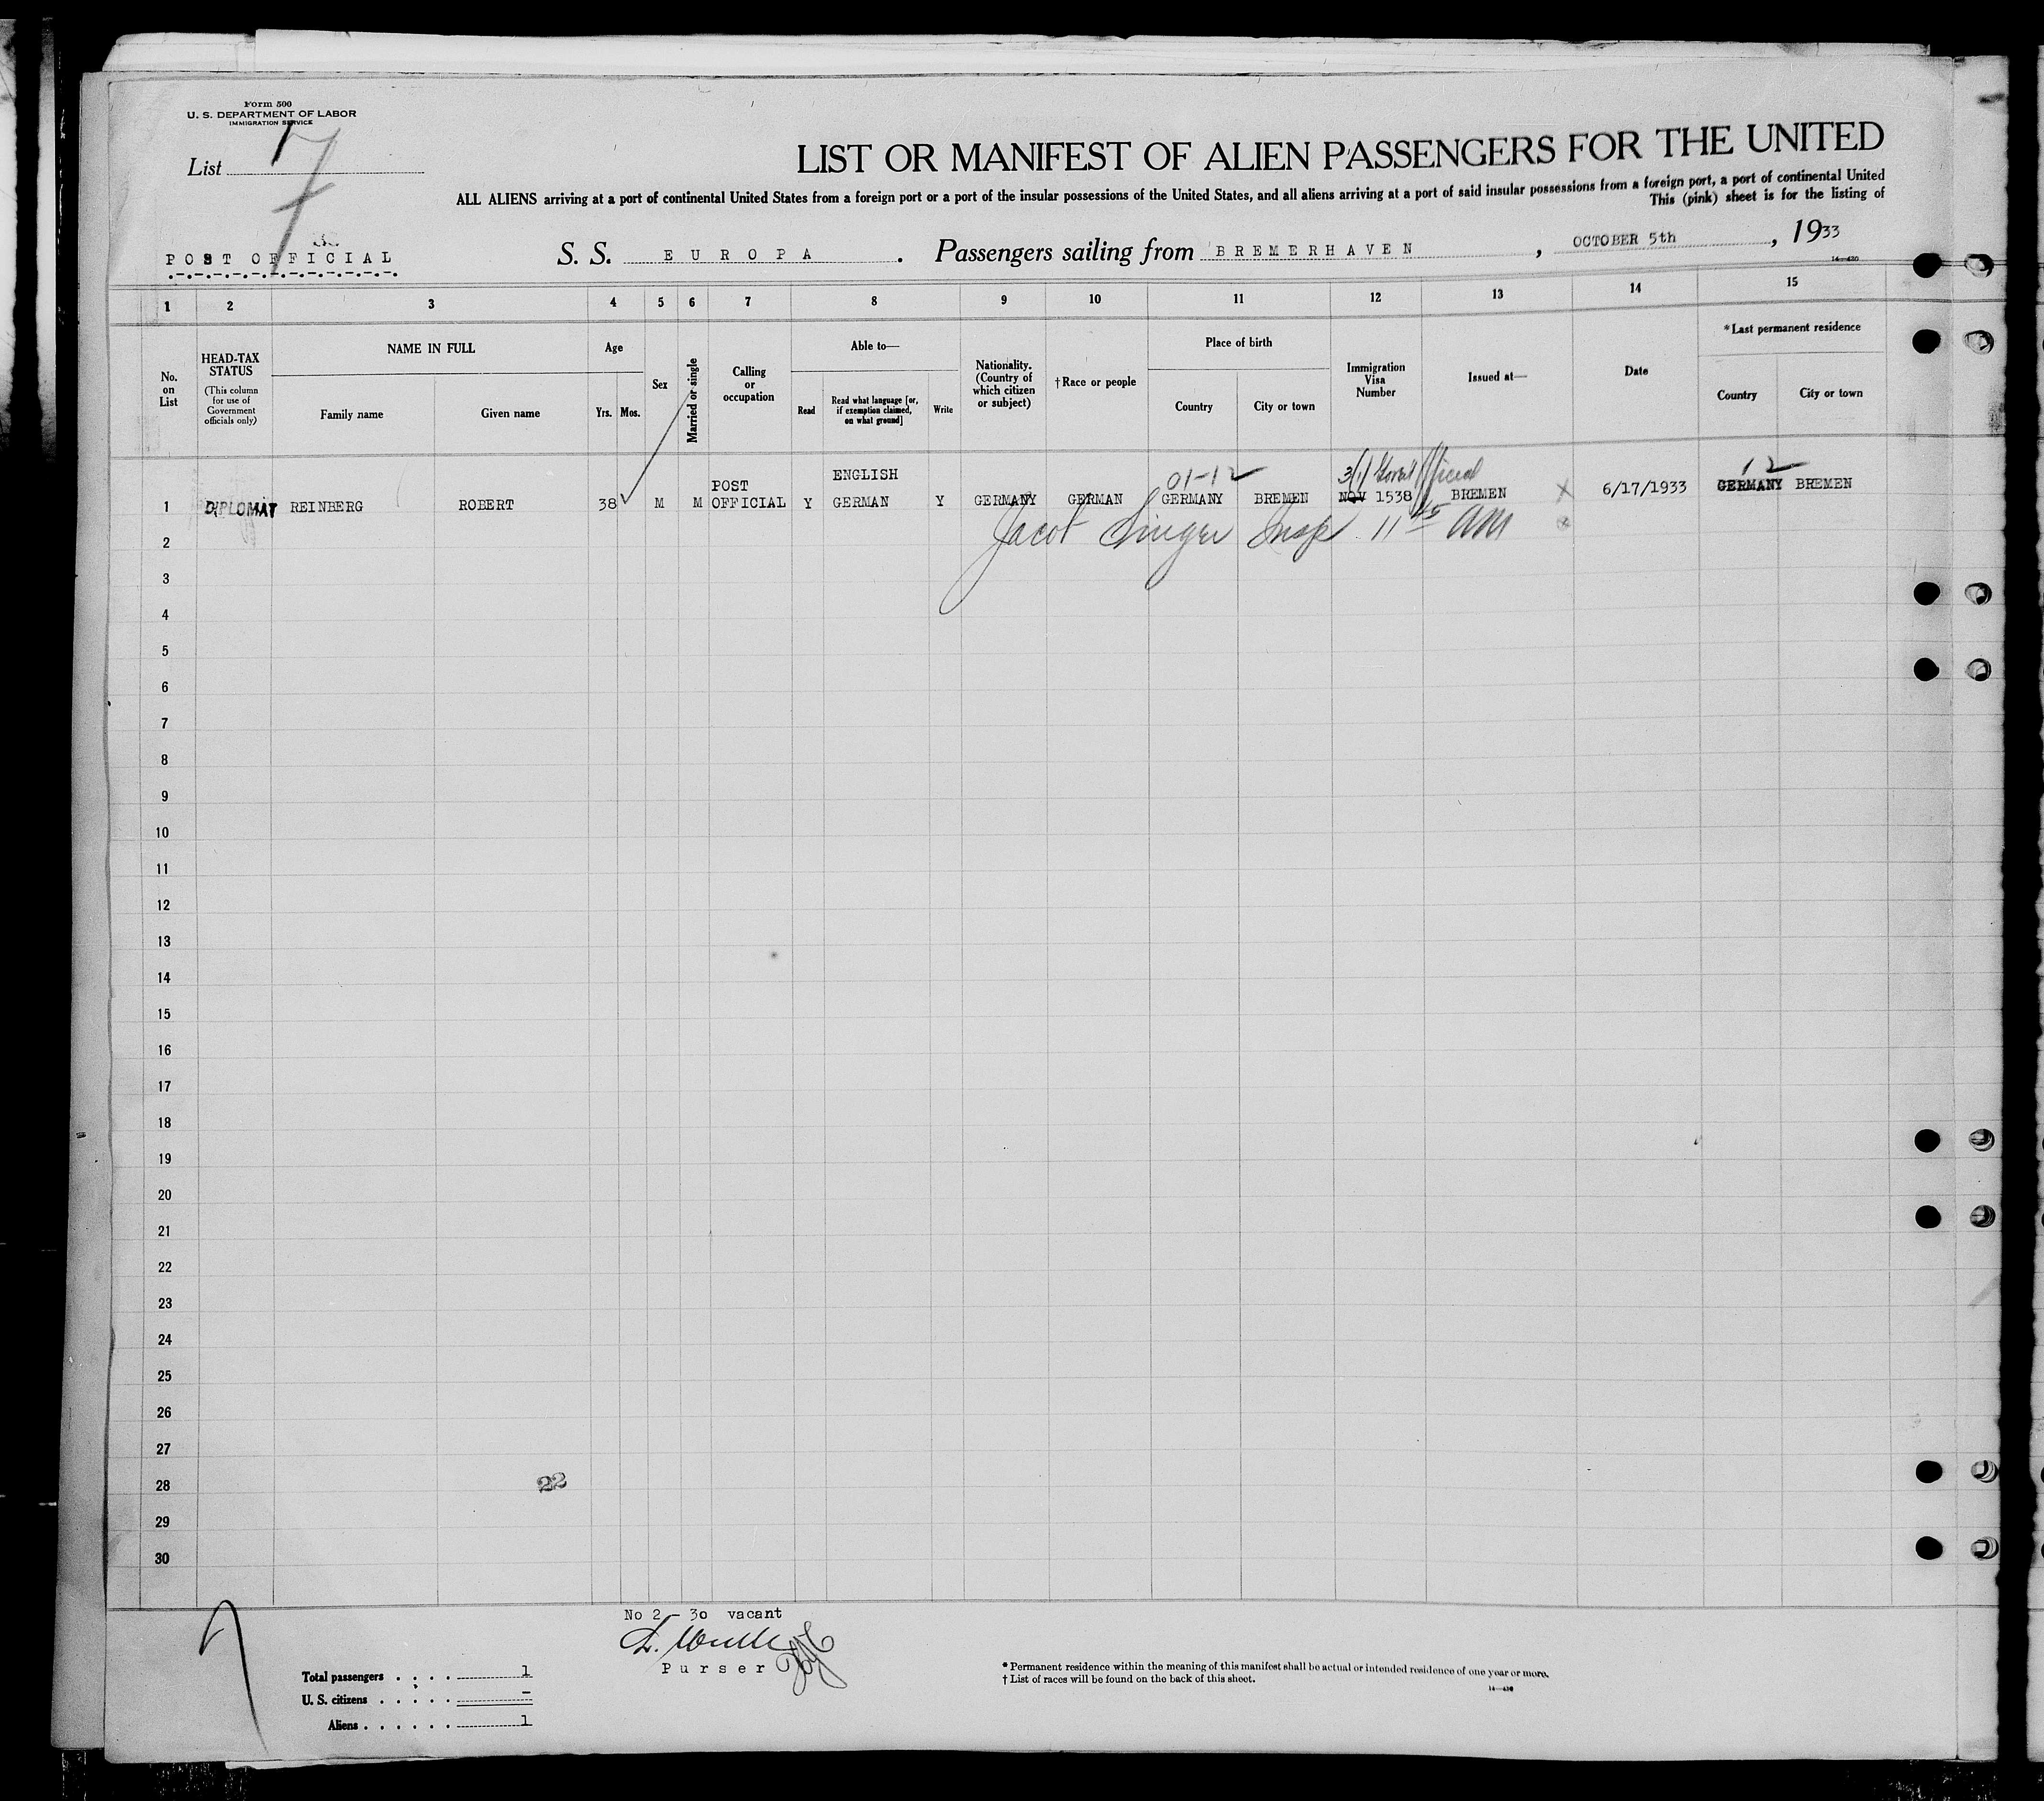 Form 500
U. S. DEPARTMENT OF LABOR
IMMIGRATION SERVICE
List 7
LIST OR MANIFEST OF ALIEN PASSENGERS FOR THE UNITED
ALL ALIENS arriving at a port of continental United States from a foreign port or a port of the insular possessions of the United States, and all aliens arriving at a port of said insular possessions from a foreign port, a port of continental United
This (pink) sheet is for the listing of
POST OFFICIAL
S. S. EUROPA. Passengers sailing from BREMERHAVEN, OCTOBER 5th, 1933
14—430
1 2 3 4 5 6 7 8 9 10 11 12 13 14 15
No. on List
HEAD-TAX STATUS
(This column for use of Government officials only)
NAME IN FULL
Family name
Given name
Age
Yrs. Mos.
Sex
Married or single
Calling or occupation
Able to—
Read
Read what language [or, if exemption claimed, on what ground]
Write
Nationality. (Country of which citizen or subject)
†Race or people
Place of birth
Country
City or town
Immigration Visa Number
Issued at—
Date
*Last permanent residence
Country
City or town
01-12
3(1) Govt Official
12
ENGLISH
POST
1 DIPLOMAT REINBERG ROBERT 38 M M OFFICIAL Y GERMAN Y GERMANY GERMAN GERMANY BREMEN NQV 1538 BREMEN X 6/17/1933 GERMANY BREMEN
Jacob Singer Insp 11 45 AM
2
3
4
5
6
7
8
9
10
11
12
13
14
15
16
17
18
19
20
21
22
23
24
25
26
27
28
22
29
30
No 2 - 30 vacant
Purser
7
Total passengers . . . . 1
U. S. citizens . . . . . –
Aliens . . . . . . 1
* Permanent residence within the meaning of this manifest shall be actual or intended residence of one year or more.
† List of races will be found on the back of this sheet.
14—430